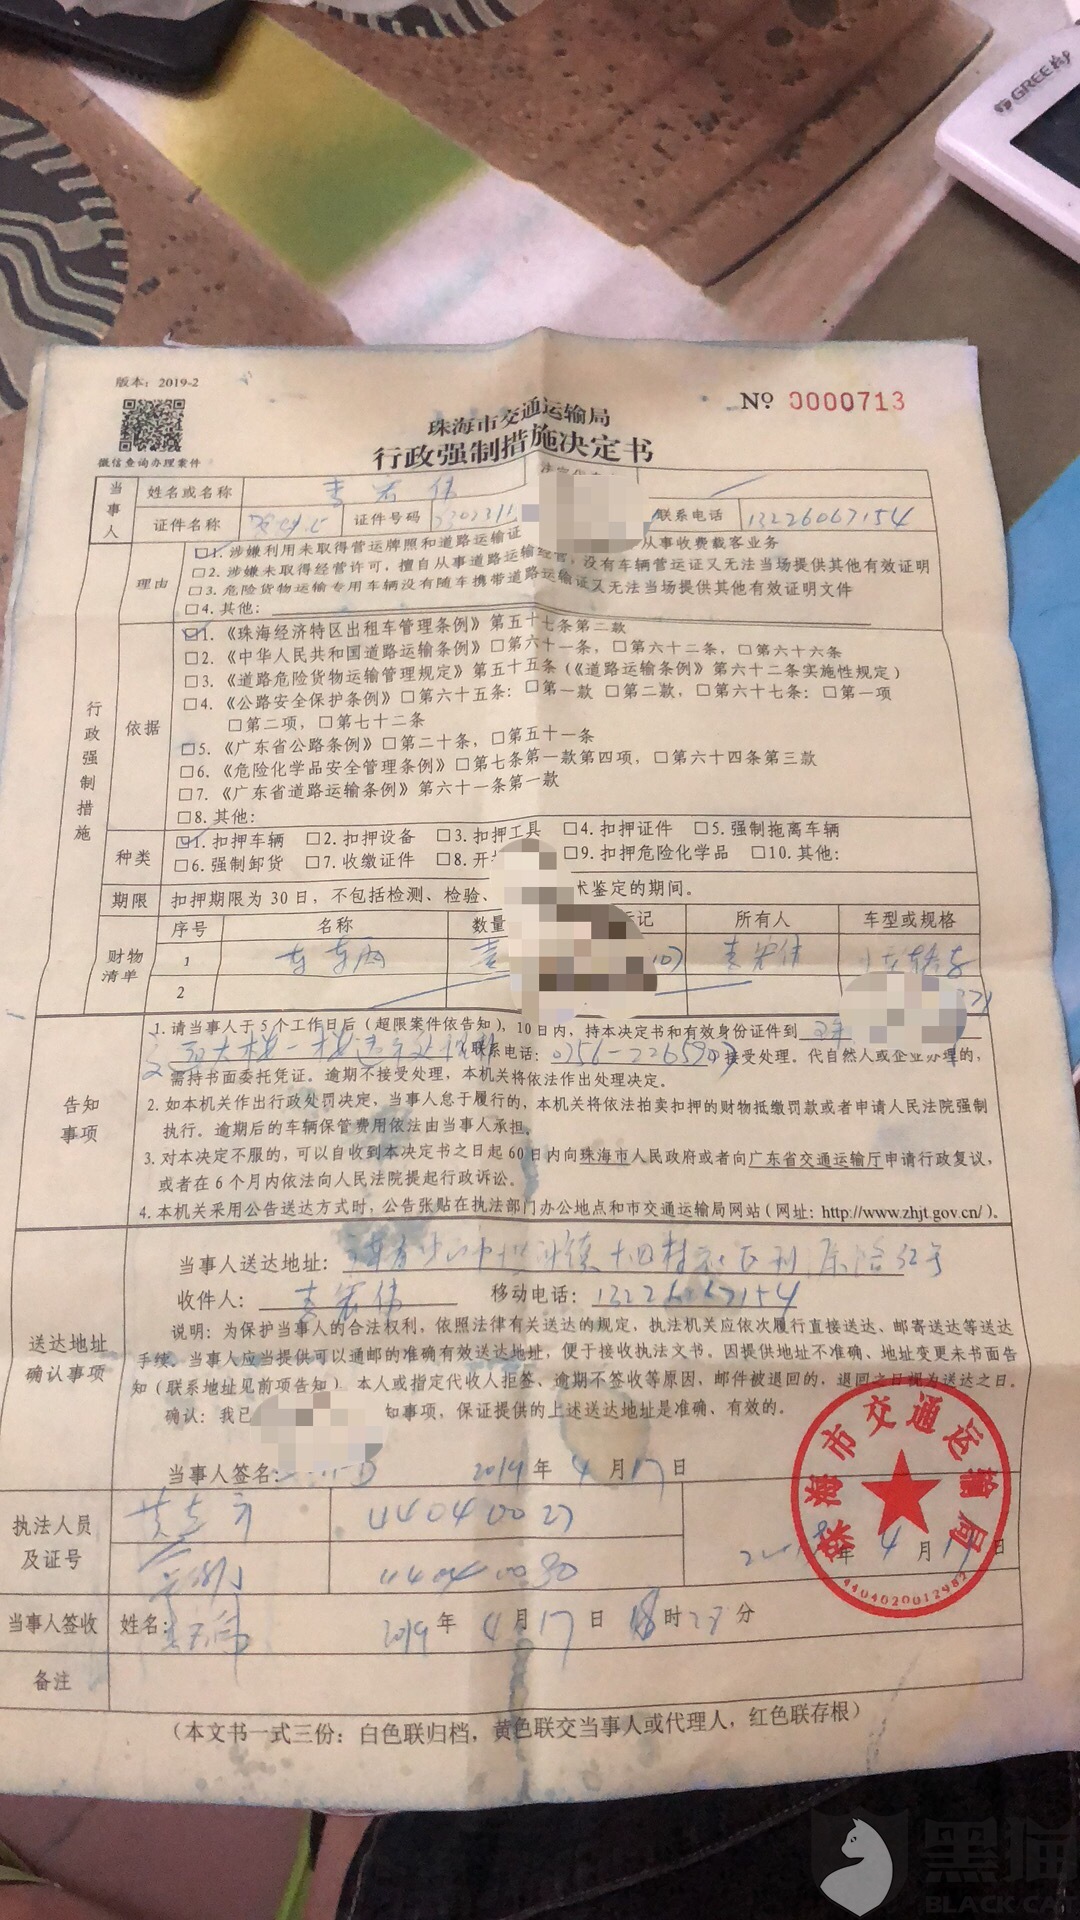 GREE
版本：2019-2
微信查询办理案件
Nº 0000713
珠海市交通运输局
行政强制措施决定书
当事人
姓名或名称
证件名称
证件号码
联系电话 13226067154
行政强制措施
理由
□1. 涉嫌利用未取得营运牌照和道路运输证 从事收费载客业务
□2. 涉嫌未取得经营许可，擅自从事道路运输经营，没有车辆营运证又无法当场提供其他有效证明
□3. 危险货物运输专用车辆没有随车携带道路运输证又无法当场提供其他有效证明文件
□4. 其他：
依据
☑1.《珠海经济特区出租车管理条例》第五十七条第二款
□2.《中华人民共和国道路运输条例》□第六十一条，□第六十二条，□第六十六条
□3.《道路危险货物运输管理规定》第五十五条（《道路运输条例》第六十二条实施性规定）
□4.《公路安全保护条例》□第六十五条：□第一款 □第二款，□第六十七条：□第一项
□第二项，□第七十二条
□5.《广东省公路条例》□第二十条，□第五十一条
□6.《危险化学品安全管理条例》□第七条第一款第四项，□第六十四条第三款
□7.《广东省道路运输条例》第六十一条第一款
□8. 其他：
种类
☑1. 扣押车辆 □2. 扣押设备 □3. 扣押工具 □4. 扣押证件 □5. 强制拖离车辆
□6. 强制卸货 □7. 收缴证件 □8. 开 □9. 扣押危险化学品 □10. 其他：
期限
扣押期限为 30 日，不包括检测、检验、 术鉴定的期间。
财物清单
序号 名称 数量 记 所有人 车型或规格
1 车辆 小轿车
2
告知事项
1. 请当事人于 5 个工作日后（超限案件依告知），10 日内，持本决定书和有效身份证件到
联系电话：0756- 接受处理。代自然人或企业办理的，
需持书面委托凭证。逾期不接受处理，本机关将依法作出处理决定。
2. 如本机关作出行政处罚决定，当事人怠于履行的，本机关将依法拍卖扣押的财物抵缴罚款或者申请人民法院强制
执行。逾期后的车辆保管费用依法由当事人承担。
3. 对本决定不服的，可以自收到本决定书之日起 60 日内向珠海市人民政府或者向广东省交通运输厅申请行政复议，
或者在 6 个月内依法向人民法院提起行政诉讼。
4. 本机关采用公告送达方式时，公告张贴在执法部门办公地点和市交通运输局网站（网址：http://www.zhjt.gov.cn/）。
送达地址确认事项
当事人送达地址：
收件人： 移动电话：13226067154
说明：为保护当事人的合法权利，依照法律有关送达的规定，执法机关应依次履行直接送达、邮寄送达等送达
手续。当事人应当提供可以通邮的准确有效送达地址，便于接收执法文书。因提供地址不准确、地址变更未书面告
知（联系地址见前项告知）本人或指定代收人拒签、逾期不签收等原因，邮件被退回的，退回之日视为送达之日。
确认：我已 知事项，保证提供的上述送达地址是准确、有效的。
当事人签名： 2019 年 4 月 17 日
执法人员及证号
44040027
44040030
年 4 月 17 日
珠海市交通运输局
4404020012982
当事人签收 姓名： 2019 年 4 月 17 日 时 分
备注
（本文书一式三份：白色联归档，黄色联交当事人或代理人，红色联存根）
黑猫
BLACK CAT